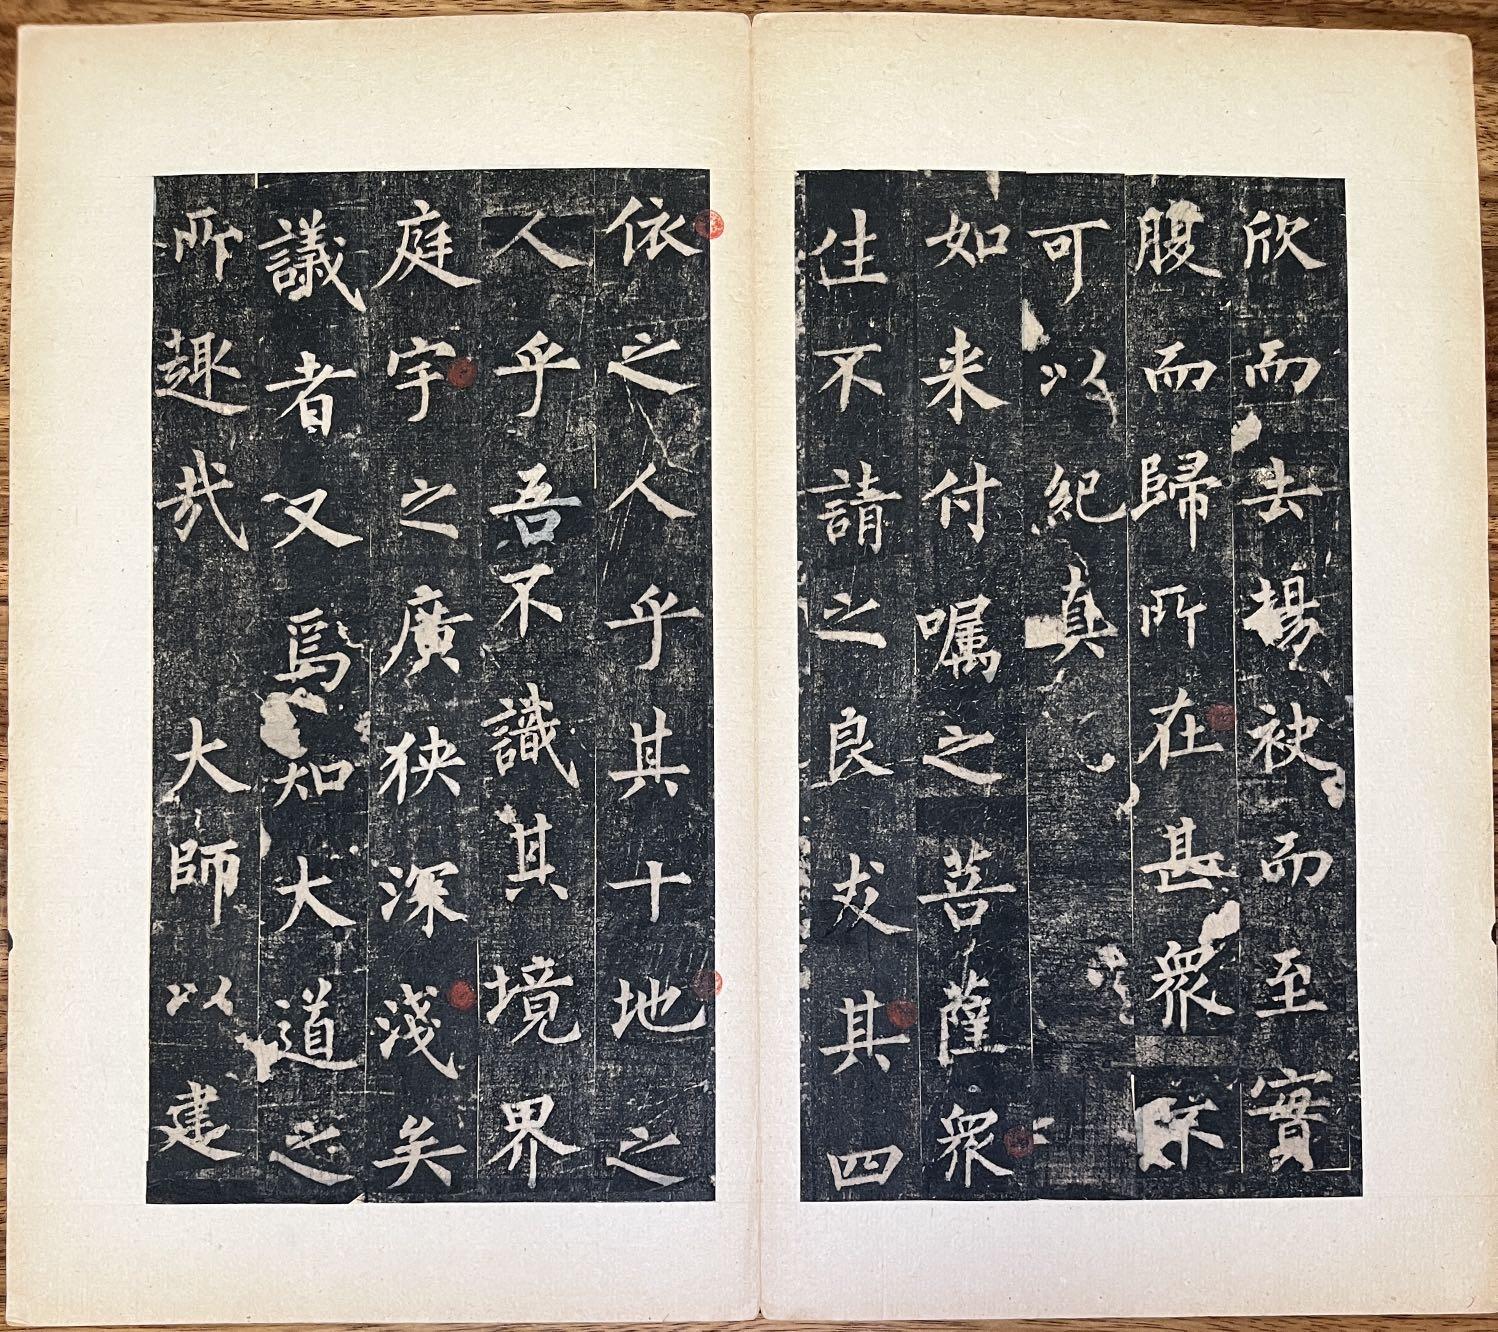 欣而去揚袂而至實
腹而歸所在甚衆不
可以紀真
如来付嘱之菩薩衆
生不請之良友其四
依之人乎其十地之
人乎吾不識其境界
庭宇之廣狭深淺矣
議者又焉知大道之
所趣哉大師以建